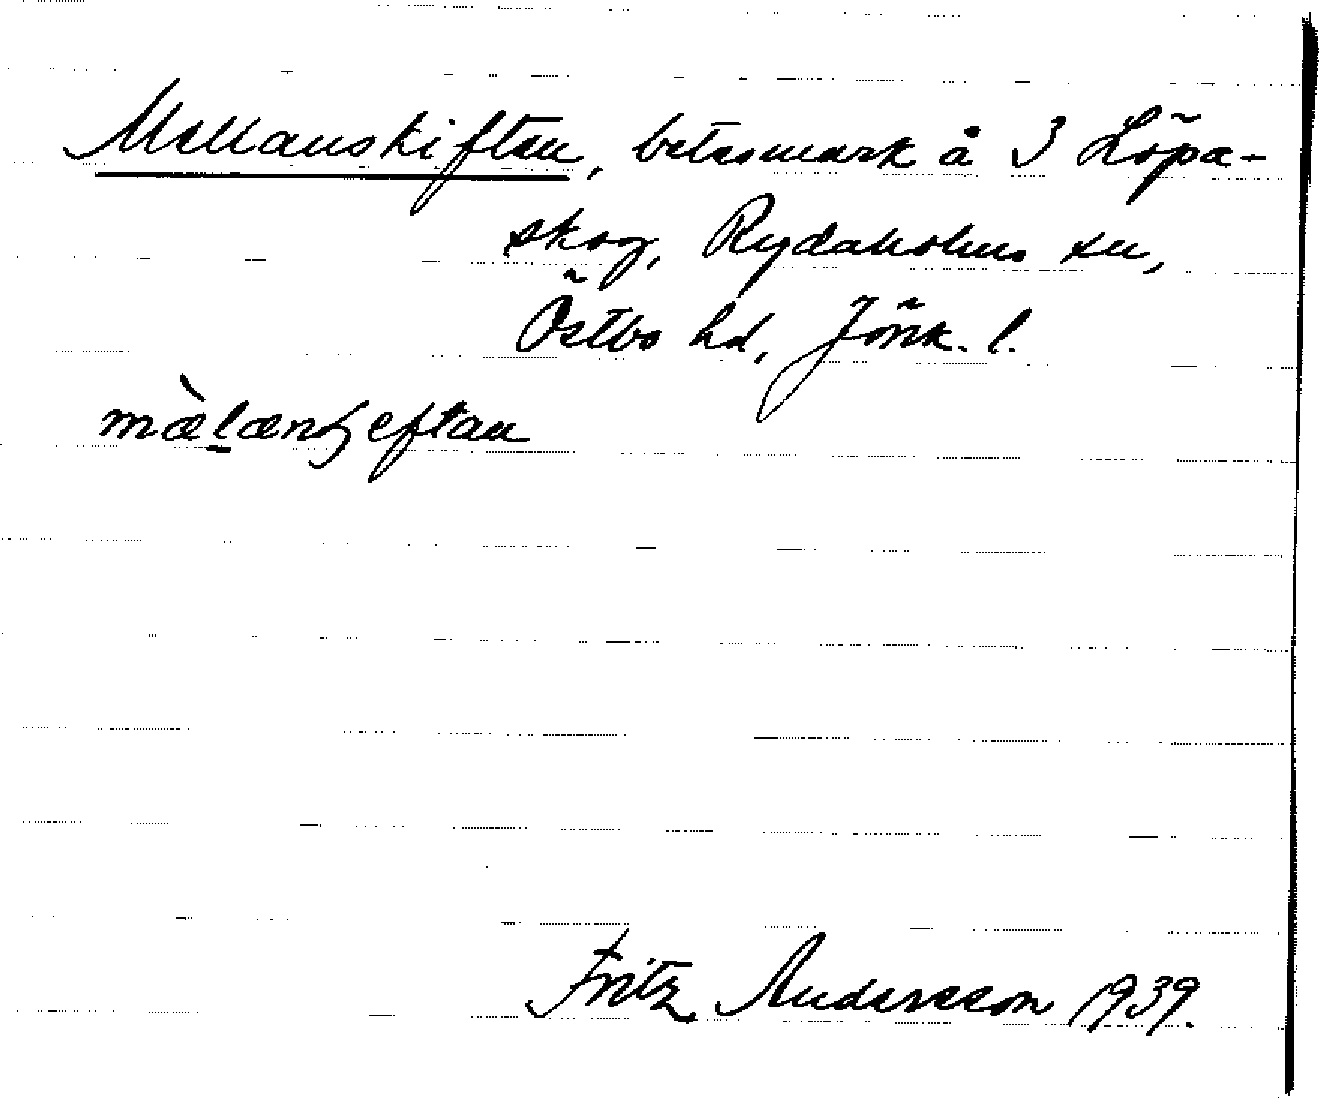 Mellanskiftan, betesmark å 3 Löpa-
skog, Rydaholms sn,
Östbo hd, Jönk. l.
mæ̀lænɧeftan
Fritz Andersson 1939.